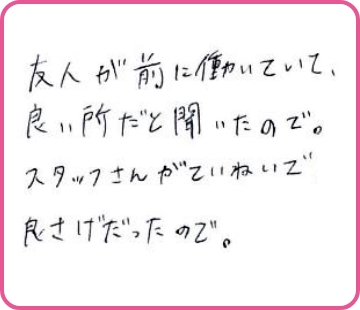 友人が前に働いていて、
良い所だと聞いたので。
スタッフさんがていねいで
良さげだったので。